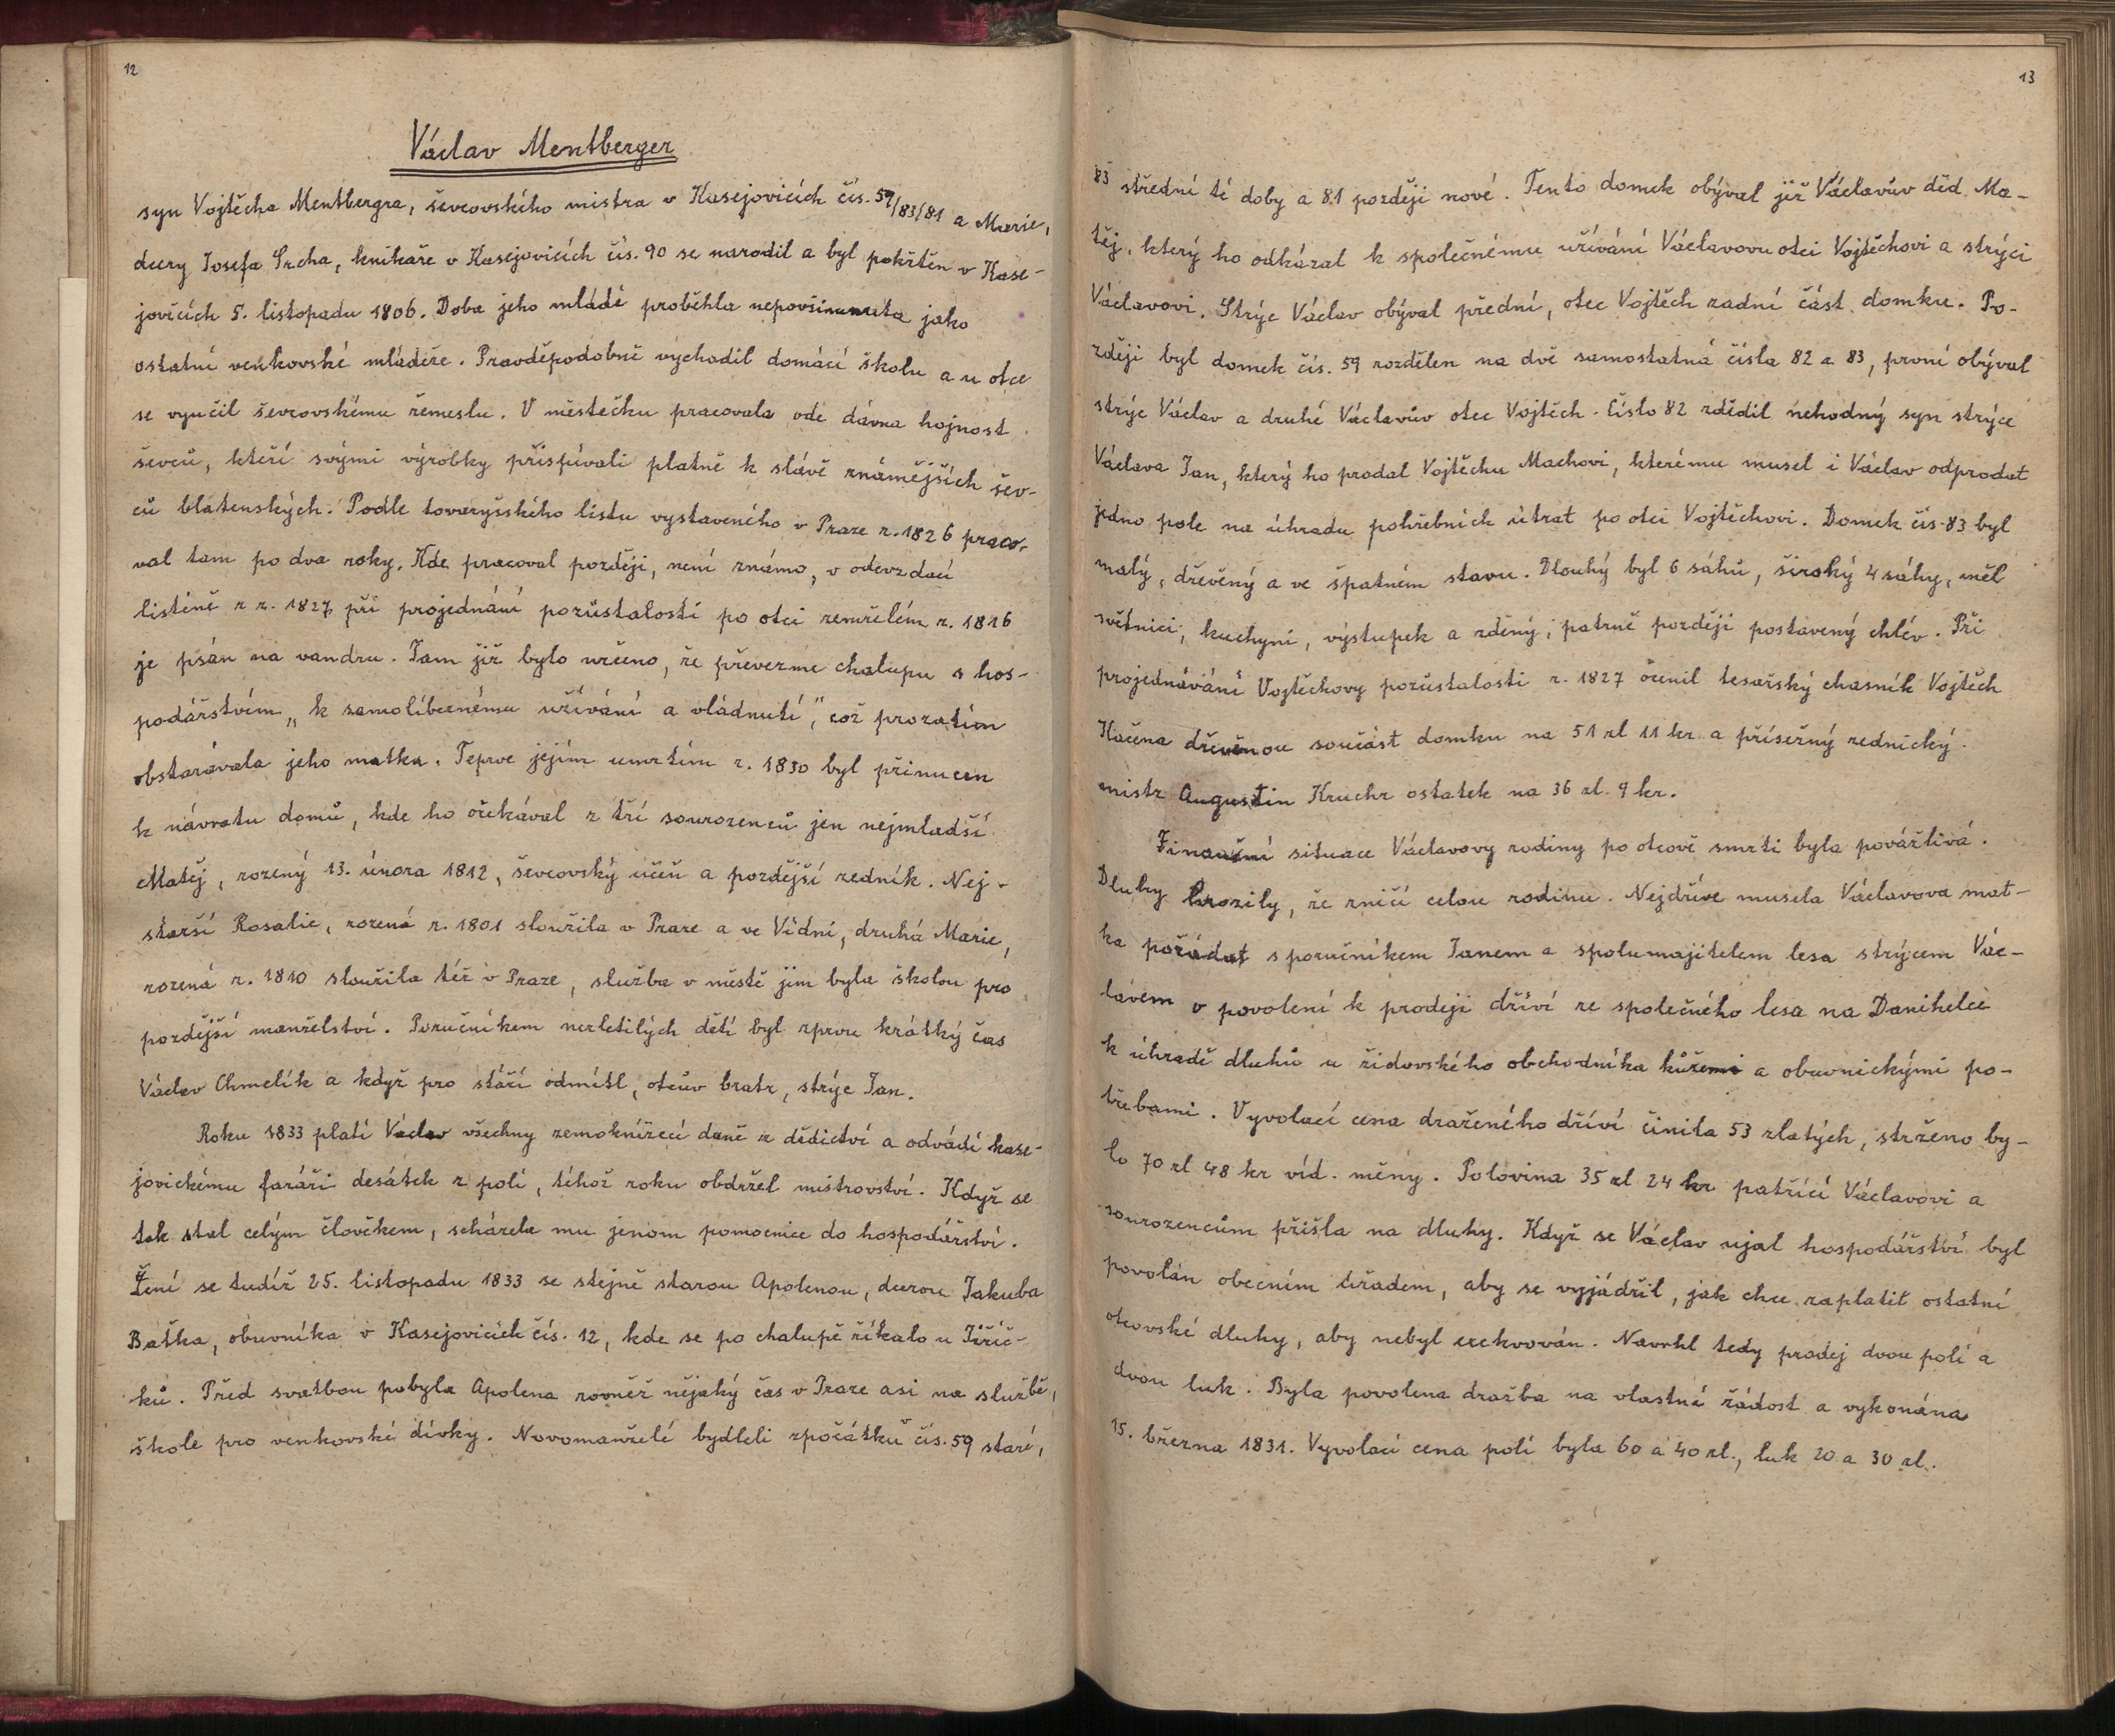 12
Václav Mentberger
syn Vojtěcha Mentbergra, ševcovského mistra v Kasejovicích čís. 59/83/81 a Marie,
dcery Josefa Srcha, knikaře v Kasejovicích čís. 90 se narodil a byl pokřtěn v Kase-
jovicích 5. listopadu 1806. Doba jeho mládí proběhla nepovšimnuta jako
ostatní venkovské mládeže. Pravděpodobně vychodil domácí školu a u otce
se vyučil ševcovskému řemeslu. V městečku pracovala ode dávna hojnost
ševců, kteří svými výrobky přispívali platně k slávě známějších šev-
ců blatenských. Podle tovaryšského listu vystaveného v Praze r. 1826 praco-
val tam po dva roky. Kde pracoval později, není známo, v odevzdací
listině z r. 1827 při projednání pozůstalosti po otci zemřelém r. 1816
je psán na vandru. Tam již bylo určeno, že převezme chalupu s hos-
podářstvím „k samolibeznému užívání a vládnutí", což prozatím
obstarávala jeho matka. Teprve jejím úmrtím r. 1830 byl přinucen
k návratu domů, kde ho očekával z tří sourozenců jen nejmladší
Matěj, rozený 13. února 1812, ševcovský učeň a pozdější zedník. Nej-
starší Rosalie, rozená r. 1801 sloužila v Praze a ve Vídni, druhá Marie,
rozená r. 1810 sloužila též v Praze, služba v městě jim byla školou pro
pozdější manželství. Poručníkem nezletilých dětí byl zprvu krátký čas
Václav Chmelík a když pro stáří odmítl, otcův bratr, strýc Jan.
Roku 1833 platí Václav všechny zemoknížecí daně z dědictví a odvádí kase-
jovickému faráři desátek z polí, téhož roku obdržel mistrovství. Když se
tak stal celým člověkem, scházela mu jenom pomocnice do hospodářství.
Žení se tudíž 25. listopadu 1833 se stejně starou Apolenou, dcerou Jakuba
Baťka, obuvníka v Kasejovicích čís. 12, kde se po chalupě říkalo u Jiříč-
ků. Před svatbou pobyla Apolena rovněž nějaký čas v Praze asi na službě,
škole pro venkovské dívky. Novomanželé bydleli zpočátku čís. 59 staré,
13
83 střední té doby a 81 později nové. Tento domek obýval již Václavův děd Ma-
těj, který ho odkázal k společnému užívání Václavovu otci Vojtěchovi a strýci
Václavovi. Strýc Václav obýval přední, otec Vojtěch zadní část domku. Po-
zději byl domek čís. 59 rozdělen na dvě samostatná čísla 82 a 83, první obýval
strýc Václav a druhé Václavův otec Vojtěch. Číslo 82 zdědil nehodný syn strýce
Václava Jan, který ho prodal Vojtěchu Machovi, kterému musel i Václav odprodat
jedno pole na úhradu pohřebních útrat po otci Vojtěchovi. Domek čís. 83 byl
malý, dřevěný a ve špatném stavu. Dlouhý byl 6 sáhů, široký 4 sáhy, měl
světnici, kuchyni, výstupek a zděný, patrně později postavený chlév. Při
projednávání Vojtěchovy pozůstalosti r. 1827 ocenil tesařský chasník Vojtěch
Kačena dřevěnou součást domku na 51 zl 11 kr a přísežný zednický
mistr Augustin Kruchr ostatek na 36 zl. 9 kr.
Finanční situace Václavovy rodiny po otcově smrti byla povážlivá.
Dluhy hrozily, že zničí celou rodinu. Nejdříve musela Václavova mat-
ka požádat s poručníkem Janem a spolumajitelem lesa strýcem Vác-
lavem o povolení k prodeji dříví ze společného lesa na Danihelce
k úhradě dluhů u židovského obchodníka kůžemi a obuvnickými po-
třebami. Vyvolací cena draženého dříví činila 53 zlatých, strženo by-
lo 70 zl 48 kr víd. měny. Polovina 35 zl 24 kr patřící Václavovi a
sourozencům přišla na dluhy. Když se Václav ujal hospodářství byl
povolán obecním úřadem, aby se vyjádřil, jak chce zaplatit ostatní
otcovské dluhy, aby nebyl exekvován. Navrhl tedy prodej dvou polí a
dvou luk. Byla povolena dražba na vlastní žádost a vykonána
15. března 1831. Vyvolací cena polí byla 60 a 40 zl., luk 20 a 30 zl.